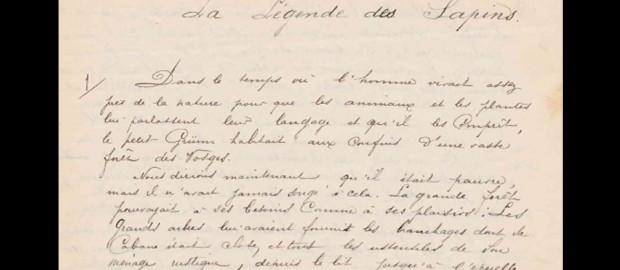 La Légende des Sapins.
1/
Dans le temps où l'homme vivait assez
près de la nature pour que les animaux et les plantes
lui parlassent leur langage et qu'il les Comprît,
le petit Grümm habitait aux Confins d'une vaste
forêt des Vosges.
Nous dirions maintenant qu'il était pauvre,
mais il n'avait jamais songé à cela. La grande forêt
pourvoyait à ses besoins Comme à ses plaisirs : Les
Grands arbres lui avaient fourni les branchages dont sa
Cabane était close, et tous les ustensiles de son
ménage rustique, depuis le lit jusqu'à l'écuelle